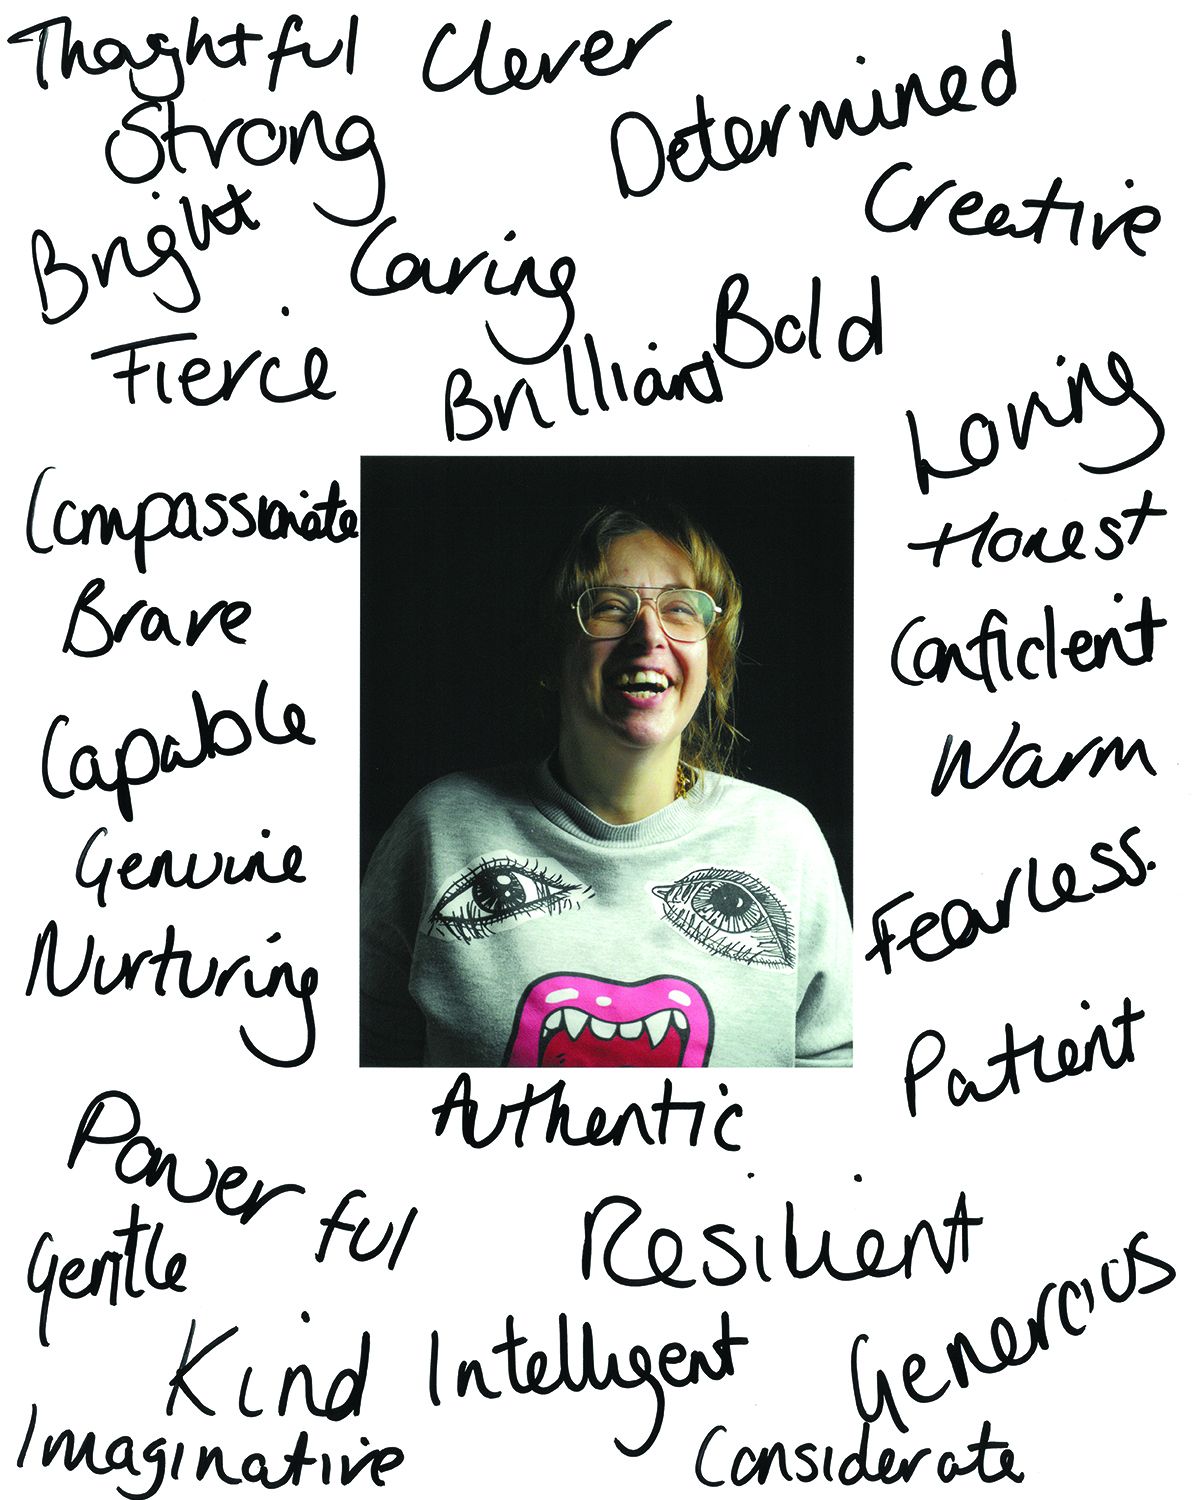 Thoghtful Clever
Determined
Strong
Creative
Bright
Caring
Bold
Fierce
Brilliant
Loving
Compassionate
Honest
Brave
Confident
Capable
Warm
Genuine
Fearless.
Nurturing
Patient
Authentic
Powerful
Resilient
Gentle
Generous
Kind
Intelligent
Imaginative
Considerate